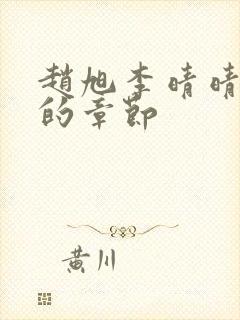 趙旭李晴晴
的章節
黃川